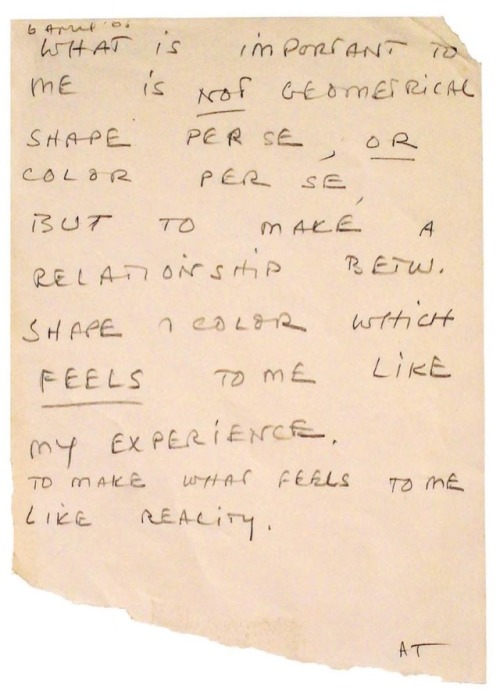 6 APRIL '06
WHAT is iMPORTANT TO
ME is NOT GEOMETRICAL
SHAPE PER SE, OR
COLOR PER SE,
BUT TO MAKE A
RELATIONSHIP BETW.
SHAPE & COLOR WHICH
FEELS TO ME LiKE
MY EXPERiENCE.
TO MAKE WHAT FEELS TO ME
LiKE REALiTY.
AT